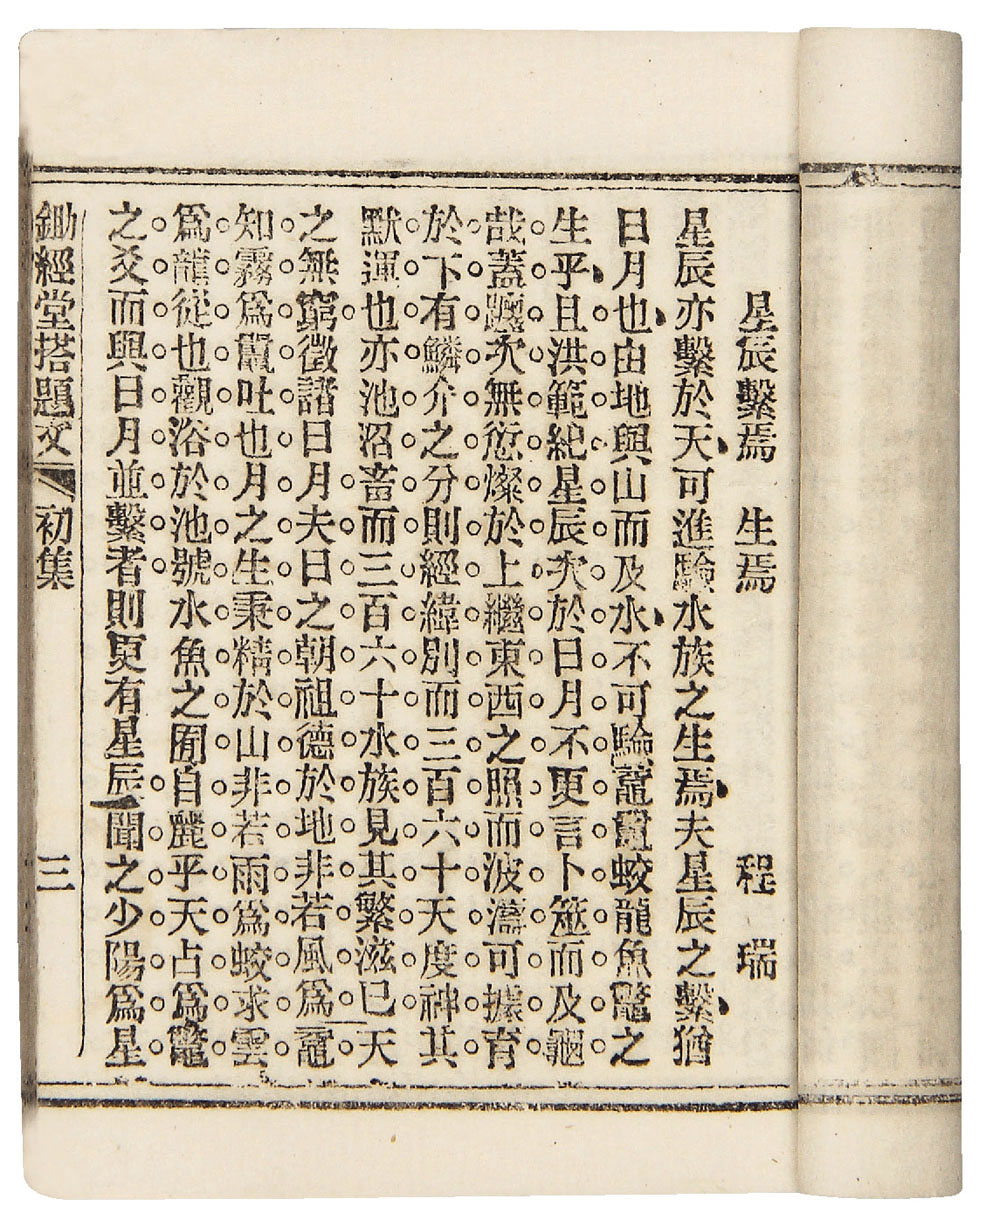 星辰繫焉 生焉 程瑞
星辰亦繫於天可進驗水族之生焉夫星辰之繫猶
日月也由地與山而及水不可驗黿鼉蛟龍魚鼈之
生乎且洪範紀星辰次於日月不更言卜筮而及龜
哉蓋躔次無愆燦於上繼東西之照而波濤可據育
於下有鱗介之分則經緯別而三百六十天度神其
默運也亦池沼畜而三百六十水族見其繁滋已天
之無窮徵諸日月夫日之朝祖德於地非若風為黿
知霧為鼉吐也月之生秉精於山非若雨為蛟求雲
為龍從也觀浴於池號水魚之囿自麗乎天占為鼈
之爻而與日月並繫者則更有星辰聞之少陽為星
鋤經堂搭題文 初集 三